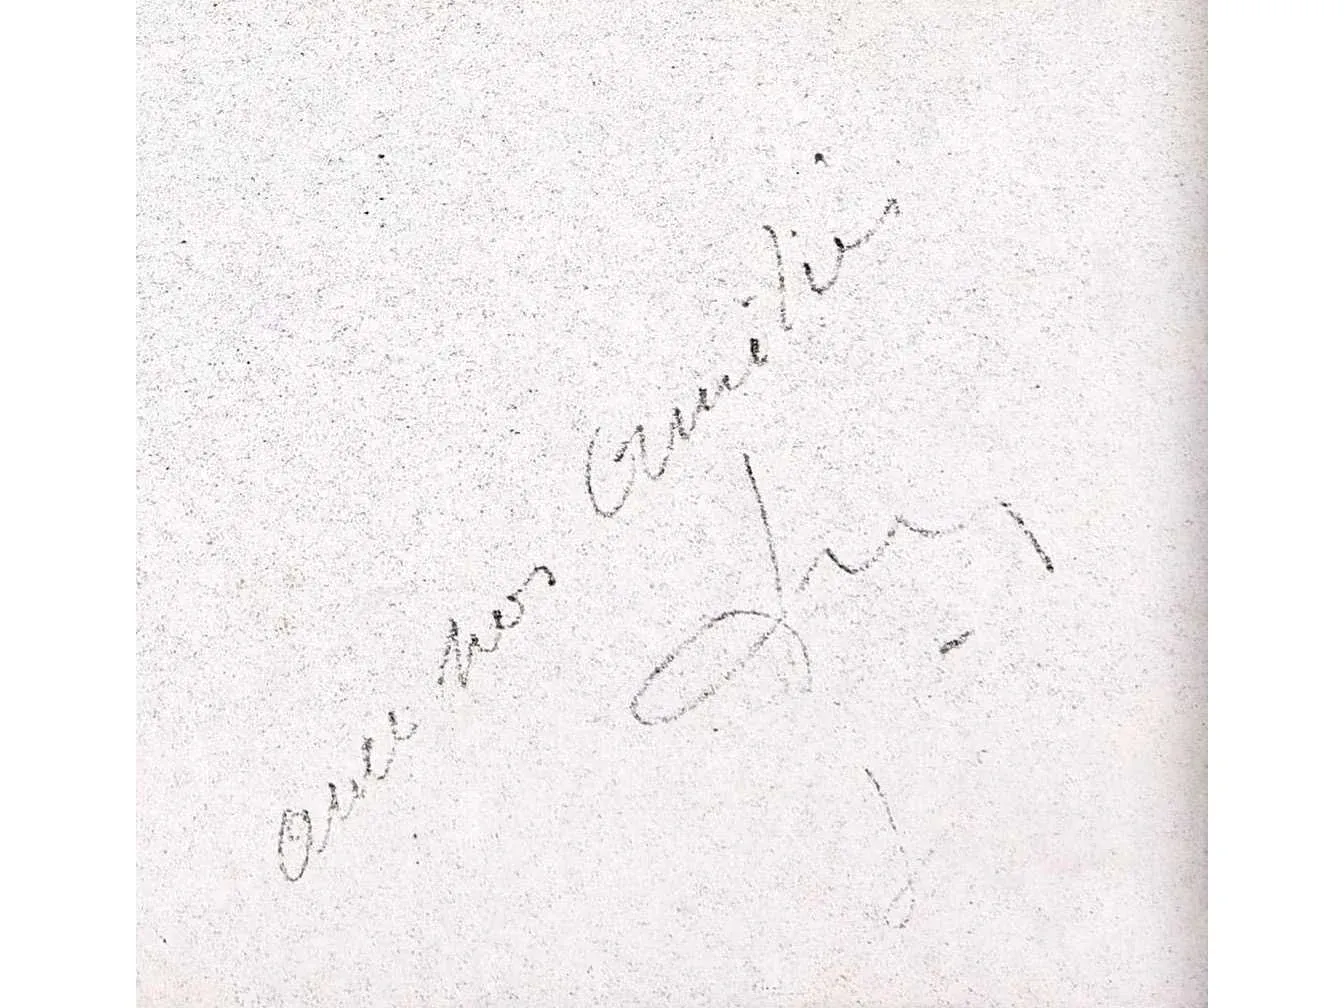 avec nos Amitiés